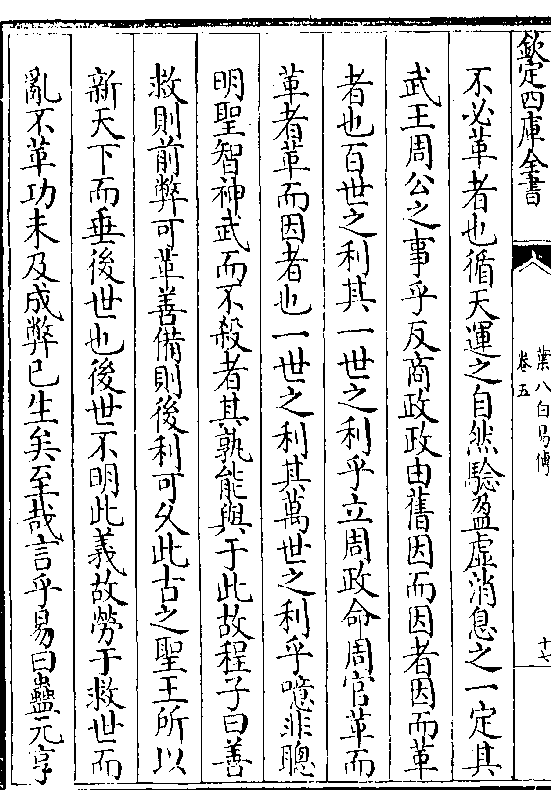 欽定四庫全書
葉八白易傳
卷五
十七
不必革者也循天運之自然驗盈虛消息之一定其
武王周公之事乎反商政政由舊因而因者因而革
者也百世之利其一世之利乎立周政命周官革而
革者革而因者也一世之利其萬世之利乎噫非聰
明聖智神武而不殺者其孰能與于此故程子曰善
救則前弊可革善備則後利可久此古之聖王所以
新天下而垂後世也後世不明此義故勞于救世而
亂不革功未及成弊已生矣至哉言乎易曰蠱元亨